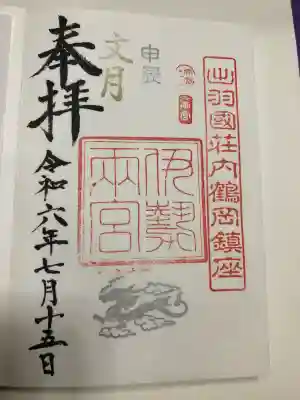 出羽國荘内鶴岡鎮座
伊勢
両宮
申辰
文月
奉拝
令和六年七月十五日